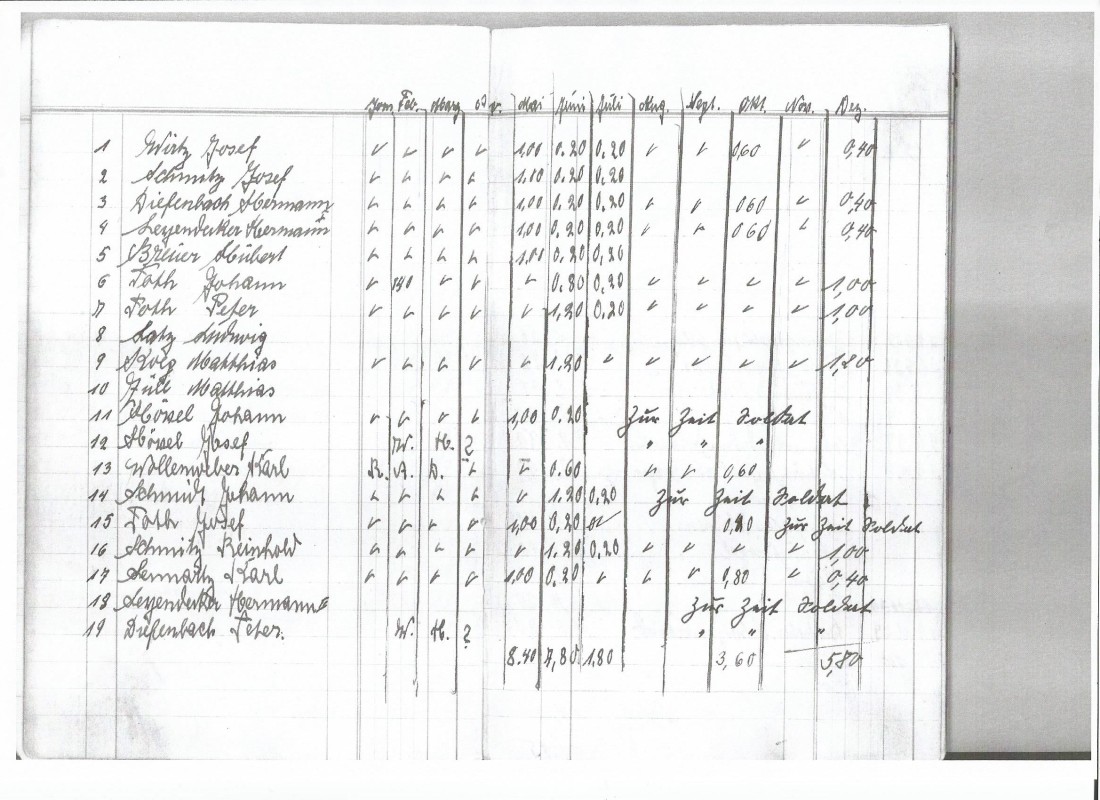 Jan. Feb. März Mai Juni Juli Aug. Sept. Okt. Nov. Dez.
1 Wirtz Josef ✓ ✓ ✓ ✓ 1,00 0.20 0.20 ✓ ✓ 0,60 ✓ 0,40
2 Schmitz Josef ✓ ✓ ✓ ✓ 1,00 0.20 0.20
3 Diefenbach Hermann ✓ ✓ ✓ ✓ 1,00 0.20 0.20 ✓ ✓ 0,60 ✓ 0,40
4 Leyendecker Hermann I ✓ ✓ ✓ ✓ 1,00 0.20 0.20 ✓ ✓ 0,60 ✓ 0,40
5 Breuer Hubert ✓ ✓ ✓ ✓ 1,00 0.20 0.20
6 Toth Johann ✓ ✓ ✓ ✓ 0.80 0.20 ✓ ✓ ✓ ✓ 1,00
7 Toth Peter ✓ ✓ ✓ ✓ ✓ 1.20 0.20 ✓ ✓ ✓ ✓ 1,00
8 Latz Ludwig
9 Matthias ✓ ✓ ✓ ✓ ✓ 1.20 ✓ ✓ ✓ ✓ ✓ 1,20
10 Jüll Matthias
11 Johann ✓ ✓ ✓ ✓ 1,00 0.20 Zur Zeit Soldat
12 Josef W. H. ? " " "
13 Wollenweber Karl R. A. D. ✓ ✓ 0.60 ✓ ✓ 0,60
14 Schmidt Johann ✓ ✓ ✓ ✓ ✓ 1.20 0.20 Zur Zeit Soldat
15 Toth Josef ✓ ✓ ✓ ✓ 1,00 0,20 Zur Zeit Soldat
16 Schmitz Reinhold ✓ ✓ ✓ ✓ ✓ 1.20 0.20 ✓ ✓ ✓ ✓ 1,00
17 Karl ✓ ✓ ✓ ✓ 1,00 0.20 ✓ ✓ ✓ 0,80 ✓ 0,40
18 Leyendecker Hermann II Zur Zeit Soldat
19 Diefenbach Peter. W. H. ? " " "
8.40 7,80 1,80 3,60 5,80